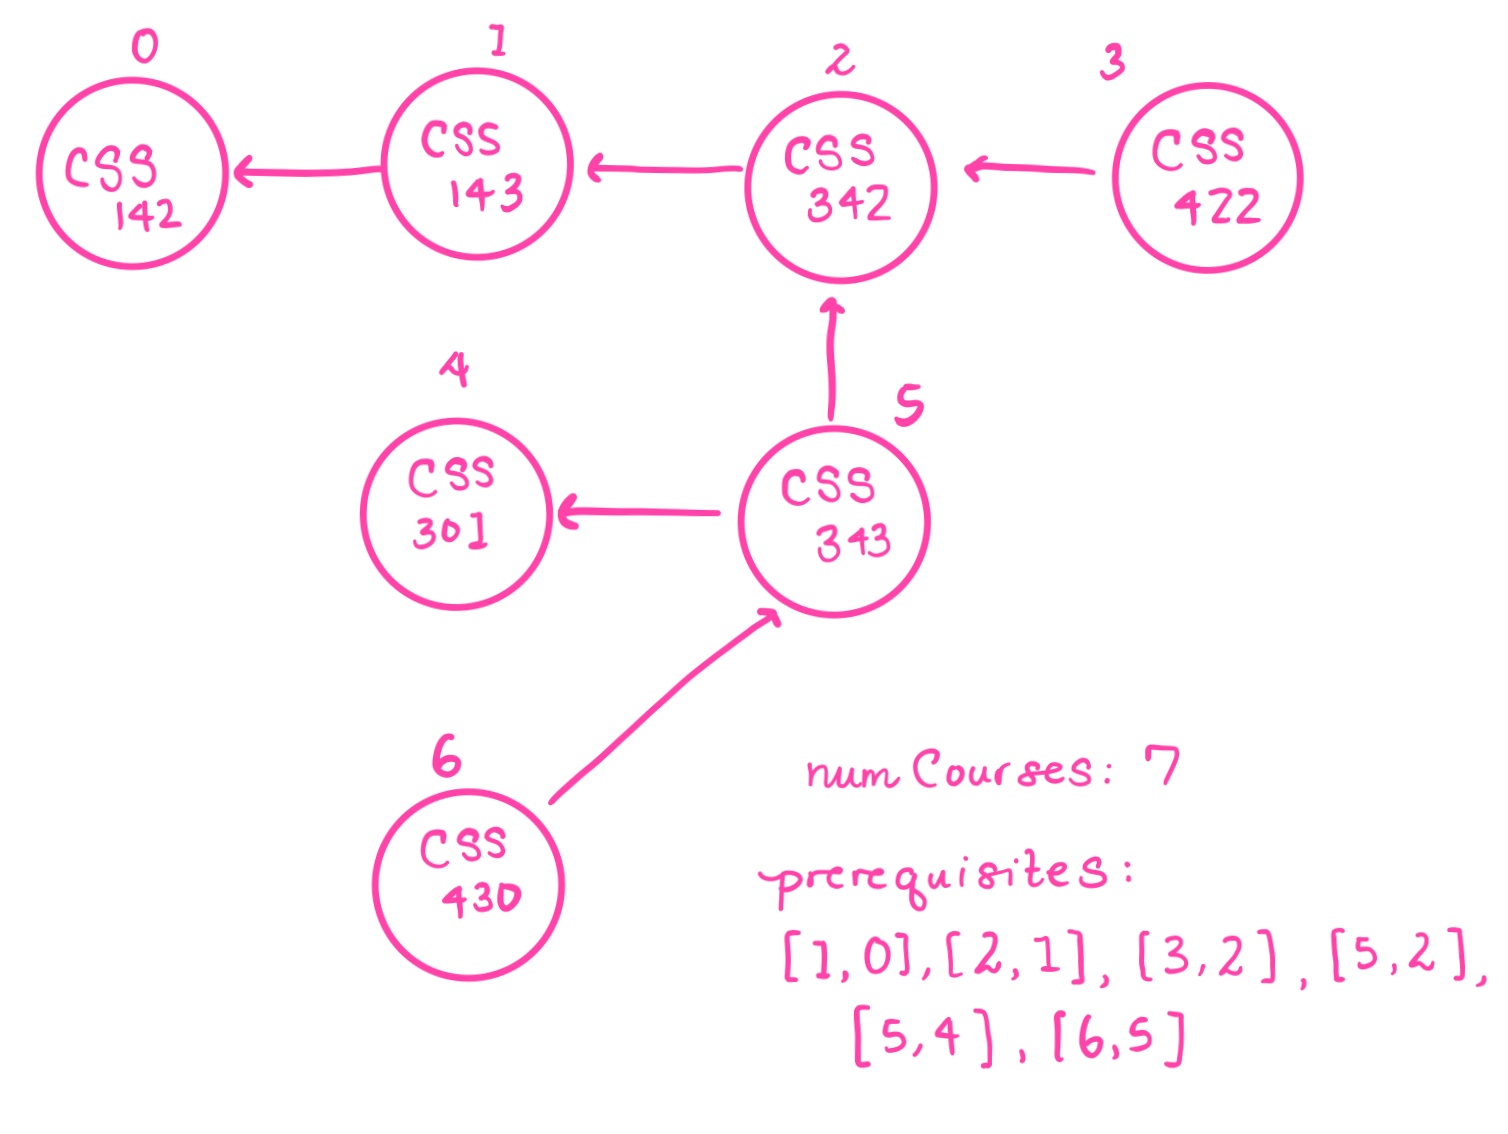 0
1
2
3
CSS
142
CSS
143
CSS
342
CSS
422
4
5
CSS
301
CSS
343
6
CSS
430
numCourses: 7
prerequisites:
[1,0],[2,1],[3,2],[5,2],
[5,4],[6,5]